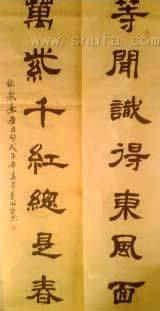 www.shufa.com
等聞識得東風面
萬紫千紅總是春